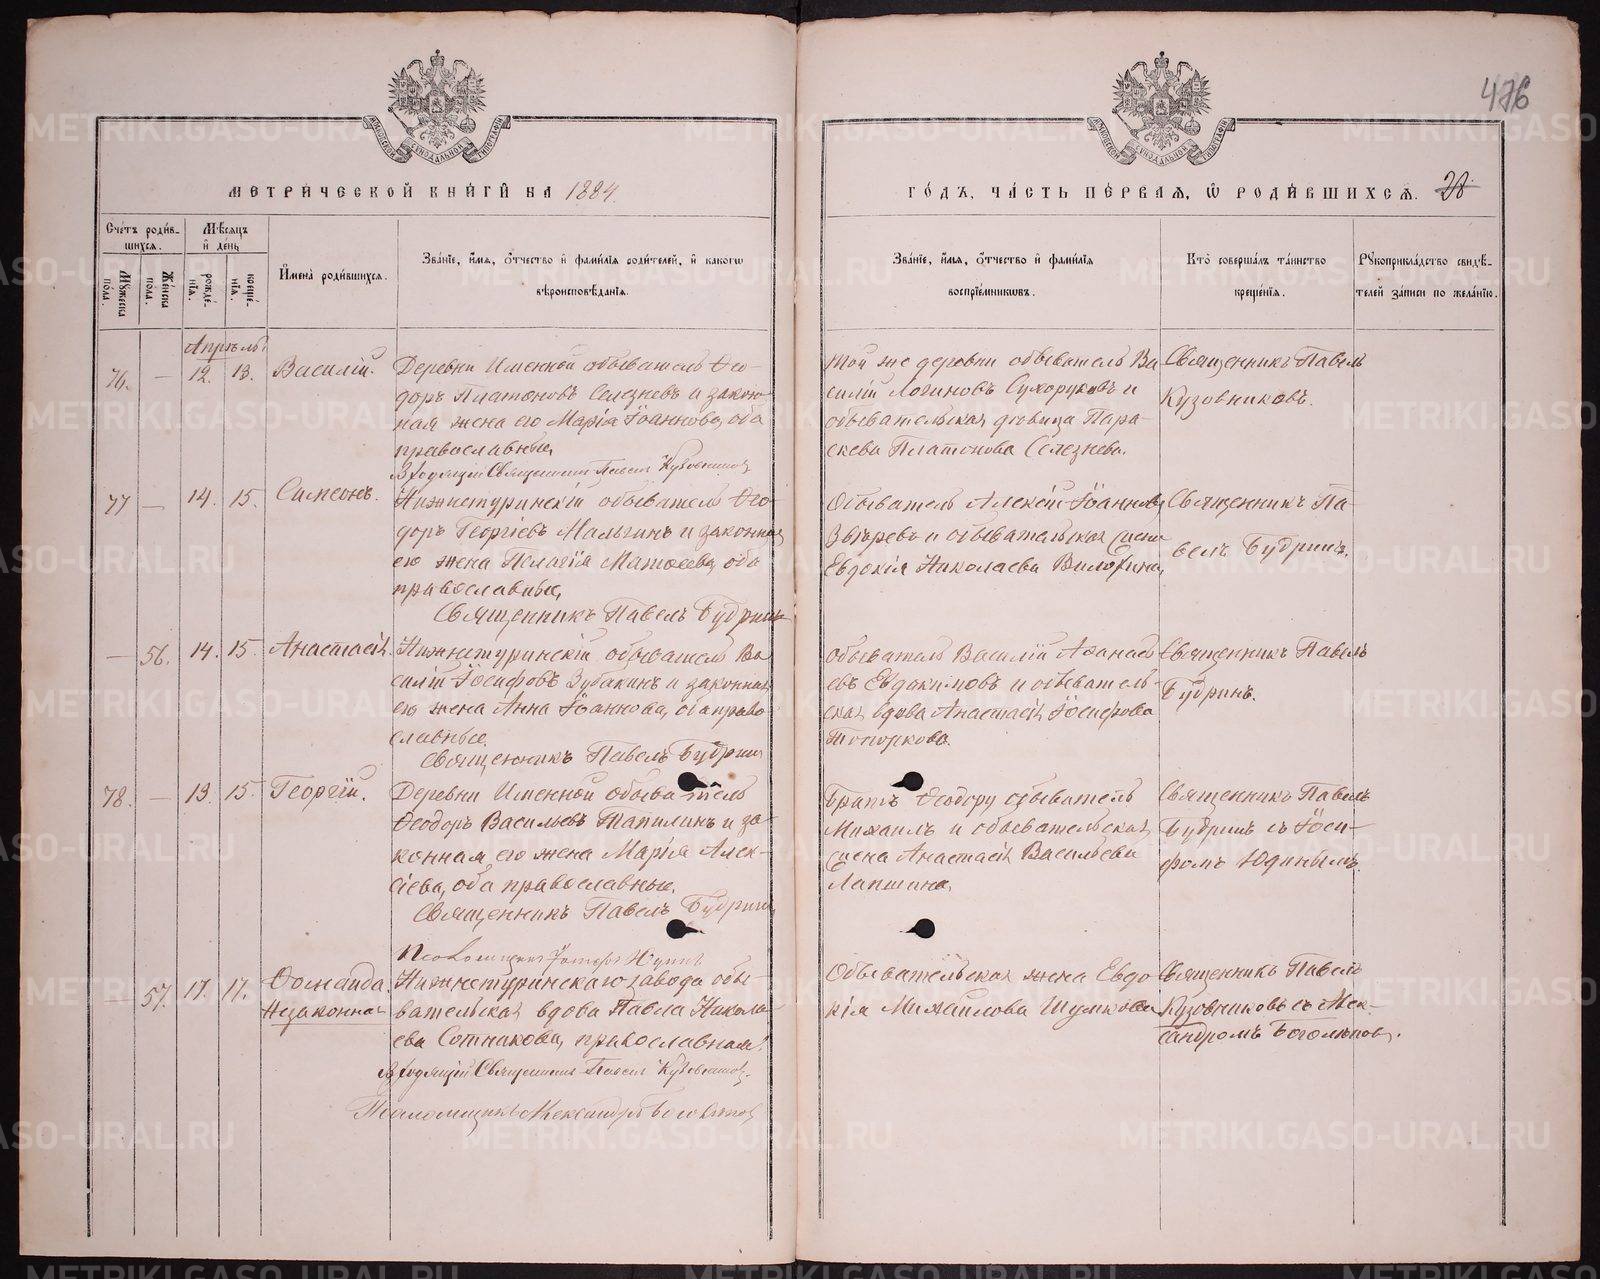 476
МЕТРИЧЕСКОЙ КНИГИ НА 1884
ГОДЪ, ЧАСТЬ ПЕРВАЯ, Ѿ РОДИВШИХСЯ. 28
Счетъ родив-
шихся.
Мѣсяцъ
и день
Мужеска пола.
Женска пола.
рожде-
нія.
креще-
нія.
Имена родившихся.
Званіе, имя, отчество и фамилія родителей, и какогѡ
вѣроисповѣданія.
Званіе, имя, отчество и фамилія
воспріемниковъ.
Кто совершалъ таинство
крещенія.
Рукоприкладство свидѣ-
телей записи по желанію.
Апрѣль
76. — 12. 13. Василій.
Деревни Именной обыватель Ѳео-
доръ Платоновъ Селезневъ и закон-
ная жена его Марія Іоаннова, оба
православные,
Входящій Священникъ Павелъ Кузовниковъ
Той же деревни обыватель Ва
силій Логиновъ Сухоруковъ и
обывательская дѣвица Пара-
скева Платонова Селезнева.
Священникъ Павелъ
Кузовниковъ.
77 — 14. 15. Симеонъ.
Нижнетуринскій обыватель Ѳео-
доръ Георгіевъ Малыгинъ и законная
его жена Пелагія Матѳеева, оба
православные,
Священникъ Павелъ Будринъ
Обыватель Алексій Іоанновъ
Звѣревъ и обывательская жена
Евдокія Николаева
Священникъ Па-
велъ Будринъ.
— 56. 14. 15. Анастасія
Нижнетуринскій обыватель Ва
силій Іосифовъ Зубакинъ и законная
его жена Анна Іоаннова, оба право
славные.
Священникъ Павелъ Будринъ
Обыватель Василій Аѳанась
евъ Евдокимовъ и обыватель-
ская вдова Анастасія Іосифова
Топоркова.
Священникъ Павелъ
Будринъ.
78. — 13. 15. Георгій.
Деревни Именной обыватель
Ѳеодоръ Васильевъ Тапилинъ и за-
конная его жена Марія Алек-
сіева, оба православные.
Священникъ Павелъ Будринъ
Братъ Ѳеодору обыватель
Михаилъ и обывательская
жена Анастасія Васильева
Лапшина,
Священникъ Павелъ
Будринъ съ Іоси-
фомъ Юдинымъ.
Псаломщикъ Іосифъ Юдинъ
— 57. 17. 17. Ѳомаида
Незаконная
Нижнетуринскаго завода обы-
вательская вдова Павла Никола-
ева Сотникова, православная.
Входящій Священникъ Павелъ Кузовниковъ.
Псаломщикъ Александръ Боголѣповъ
Обывательская жена Евдо
кія Михаилова Шумкова
Священникъ Павелъ
Кузовниковъ съ Алек-
сандромъ Боголѣповымъ.
METRIKI.GASO-URAL.RU